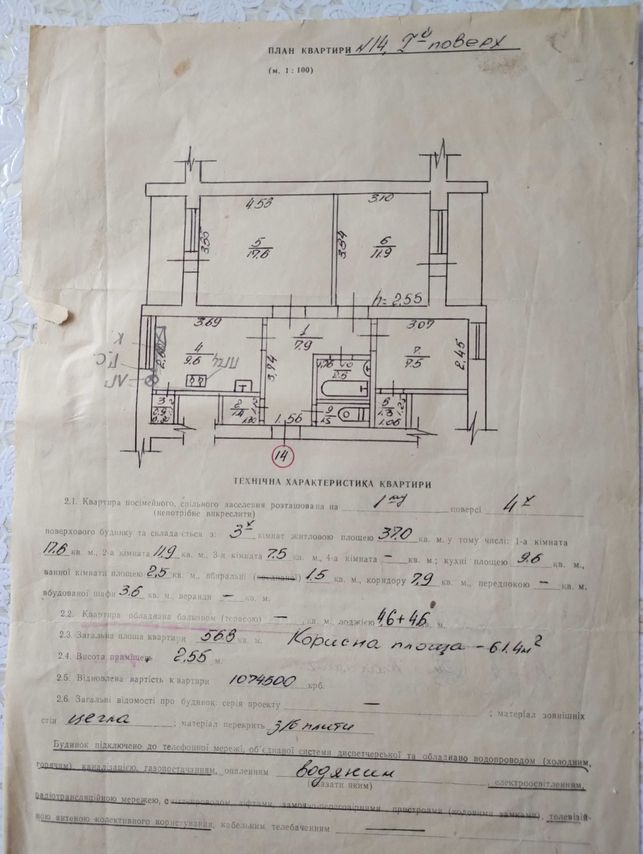 ПЛАН КВАРТИРИ N14, I й поверх
(м. 1 : 100)
4.53
3.10
3.85
5
17.6
3.84
6
11.9
h=2.55
3.69
1
7.9
3.07
К
4
9.6
ПГЧ
3.74
7
7.5
2.45
2.5
2
1.4
1.56
9
1.5
1.3
1.06
14
ТЕХНІЧНА ХАРАКТЕРИСТИКА КВАРТИРИ
2.1. Квартира посімейного, спільного заселення розташована на 1му поверсі 4х
(непотрібне викреслити)
поверхового будинку та складається з: 3х кімнат житловою площею 37.0 кв. м. у тому числі: 1-а кімната
17.6 кв. м., 2-а кімната 11.9 кв. м., 3-я кімната 7.5 кв. м., 4-а кімната — кв. м.; кухні площею 9.6 кв. м.,
ванної кімнати площею 2.5 кв. м., вбиральні 1.5 кв. м., коридору 7.9 кв. м., передпокою — кв. м.
вбудованої шафи 3.6 кв. м., веранди — кв. м.
2.2. Квартира обладнана балконом (терасою) — кв. м., лоджією 4.6+4.6 м.
2.3. Загальна площа квартири 56.8 кв. м. Корисна площа - 61.4 м²
2.4. Висота приміщень 2.55 м.
2.5. Відновлена вартість квартири 1074500 крб.
2.6. Загальні відомості про будинок: серія проекту — ; матеріал зовнішніх
стін цегла ; матеріал перекрить з/б плити
Будинок підключено до телефонної мережі, об'єднаної системи диспетчерської та обладнано водопроводом (холодним,
гарячим), каналізацією, газопостачанням, опаленням водяним електроосвітленням,
(вказати яким)
радіотрансляційною мережею, сміттєпроводом, ліфтами, замково-переговорними пристроями (кодовими замками), телевізій-
ною антеною колективного користування, кабельним телебаченням —